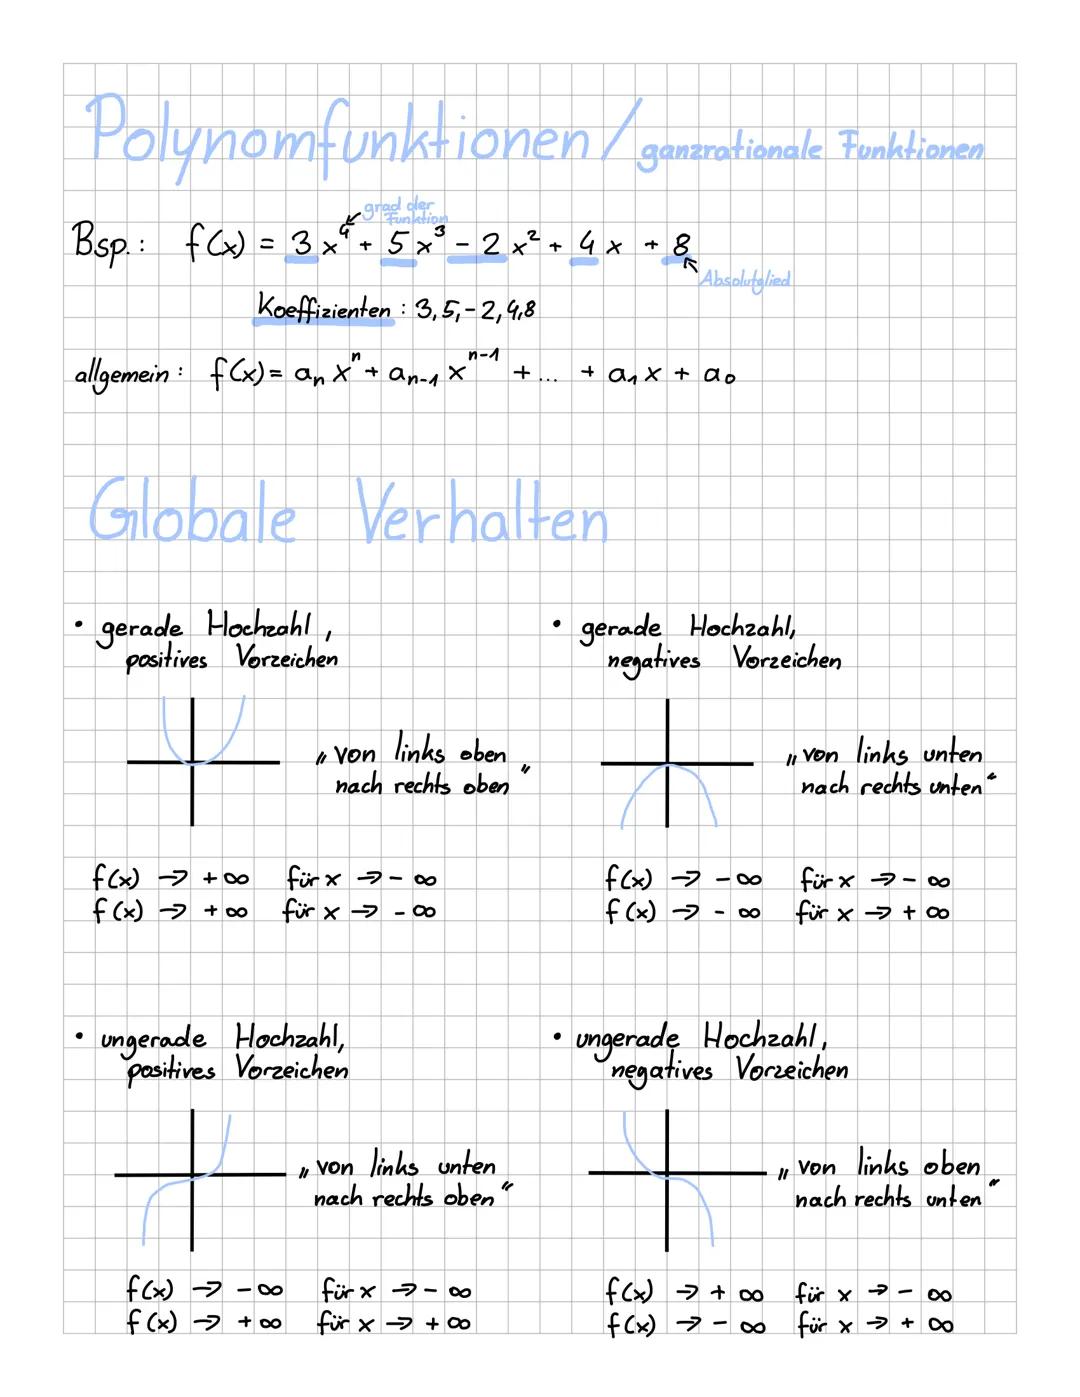 Polynomfunktionen / ganzrationale Funktionen
grad der
Funktion
Bsp.: f(x) = 3x⁴ + 5x³ - 2x² + 4x + 8
Absolutglied
Koeffizienten : 3,5,-2,4,8
allgemein : f(x) = aₙxⁿ + aₙ₋₁xⁿ⁻¹ + ... + a₁x + a₀
Globale Verhalten
• gerade Hochzahl,
positives Vorzeichen
„von links oben
nach rechts oben"
f(x) → +∞ für x → -∞
f(x) → +∞ für x → -∞
• gerade Hochzahl,
negatives Vorzeichen
„von links unten
nach rechts unten"
f(x) → -∞ für x → -∞
f(x) → -∞ für x → +∞
• ungerade Hochzahl,
positives Vorzeichen
„von links unten
nach rechts oben"
f(x) → -∞ für x → -∞
f(x) → +∞ für x → +∞
• ungerade Hochzahl,
negatives Vorzeichen
„von links oben
nach rechts unten"
f(x) → +∞ für x → -∞
f(x) → -∞ für x → +∞